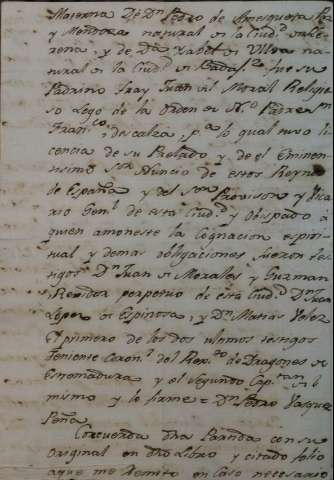 Materna De Dn Pedro de Amezqueta
y Mendoza natural de la Ciud.d de
rena, y de D.a Ysabel de Ulloa na
tural de la Ciud.d de Badajoz fue su
Padrino Fray Juan del Moral Religio
so Lego de la Orden de N.o Padre Sn
Franco, descalza, p.a lo qual tuvo li
cencia de su Prelado, y de el Eminen
tisimo Sor Nuncio de estos Reynos
de España y del Sor Provisor y Vica
rio Gen.l de esta Ciud.d y Obispado a
quien amoneste la Cognacion espiri
tual y demas obligaciones, fueron tes
tigos Dn Juan de Morales y Guzman
Rexidor perpetuo de esta Ciud.d Dn Juan
Lopez de Espinosa, y Dn Matias Velez
El primero de los dos ultimos testigos
Teniente Coron.l del Rex.to de Dragones de
Estremadura y el segundo Cap.tan de el
mismo y lo firme = Dn Pedro Vazquez
Peña
Concuerda dha Partida con su
original en dho Libro y citado folio
a que me Remito en Caso necesario